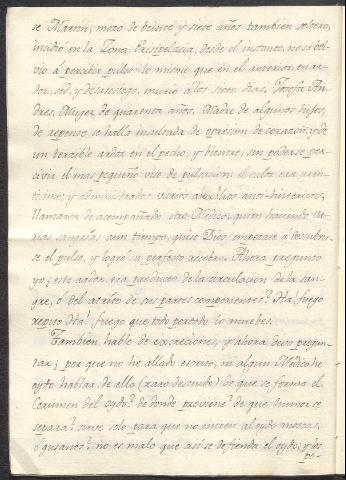 se Martin, mozo de beinte y siete años tambien soltero,
incidió en la Zona Erisipelacia, desde el instante, no se bol-
vio á percibir pulso: lo mismo que en el anterior en ar-
dor, sed, y desasosiego, murió á los siete dias. Josefa An-
dres, Muger de quarenta años, Madre de algunos hijos,
de repente se halla insultada de opresion de corazon, y de
un terrible ardor en el pecho, y bientre, sin poderse per-
civir el mas pequeño viso de pulsacion: el calor era uren-
tisimo, y administrados varios auxilios anti-histericos,
llamaron de acompañado otro Medico, quien haciendo va-
rias sangrias a un tiempo, quiso Dios empezase á descubrir-
se el pulso, y logró su perfecto recobro. Ahora pregunto
yo; este ardor era producto de la circulacion de la san-
gre, ó del atrito de sus partes componentes? Ha, fuego
repito Ha! fuego que todo potendo lo muebes.
Tambien hable de excreciones, y ahora devo pregun-
tar; por que no he allado escrito, ni algun Medico he
oydo hablar de ello (raro descuido) de que se forma el
Cerumen del oydo? de donde proviene? de que humor se
separa? sirve solo para que no entren al oydo moscas,
ó gusanos? no es malo que asi se defienda el oydo; y los
po-